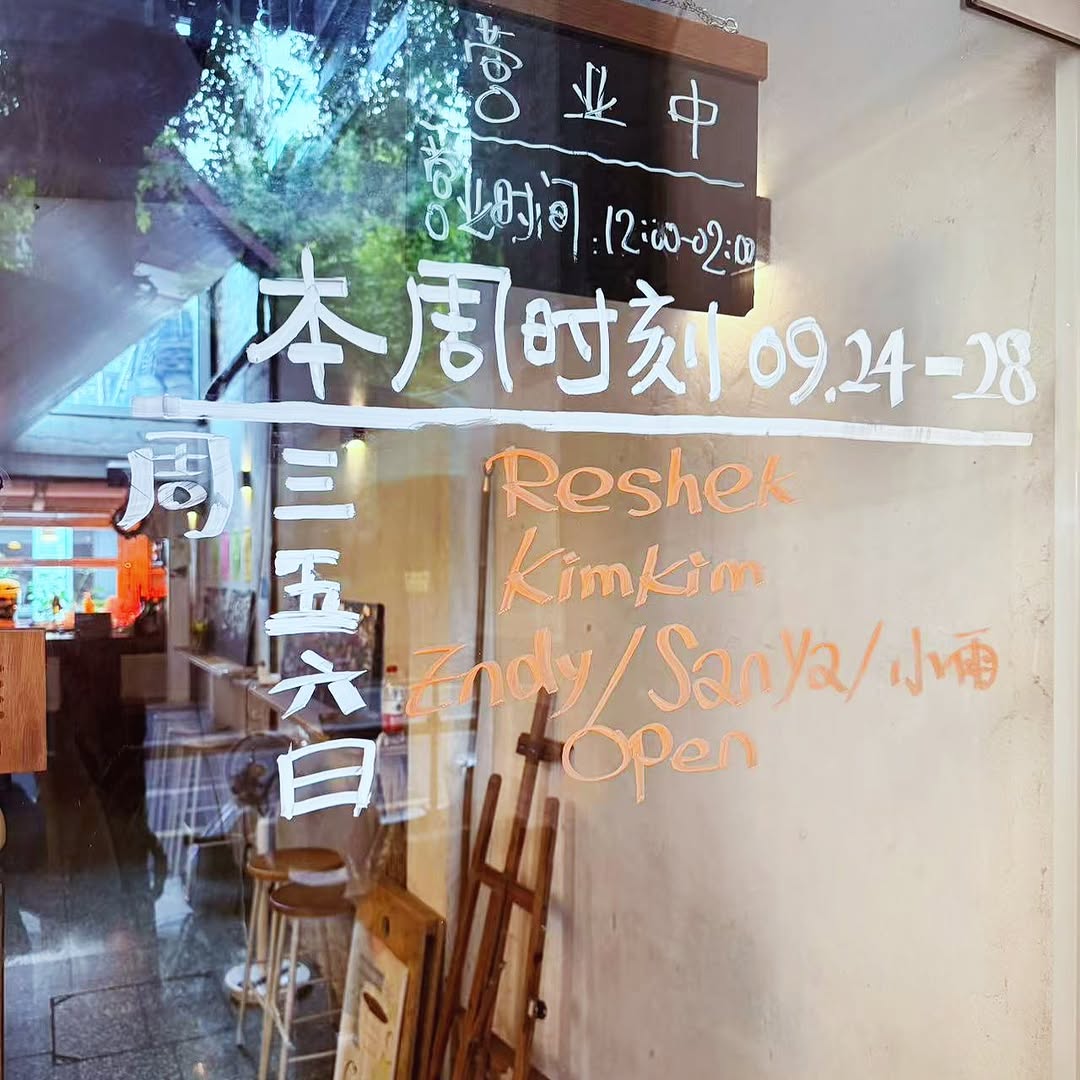 营业中
营业时间:12:00-02:00
本周时刻 09.24-28
周三 Reshek
五 Kimkim
六 Zndy/Sanya/小雨
日 Open